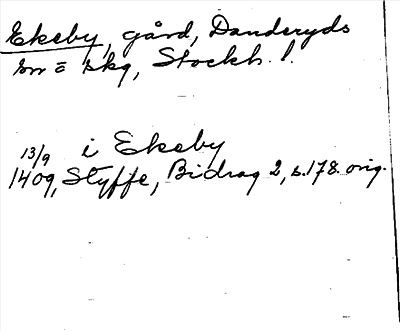 Ekeby, gård, Danderyds
sn o skg, Stockh. l.
13/9 i Ekeby
1409, Styffe, Bidrag 2, s. 178. orig.